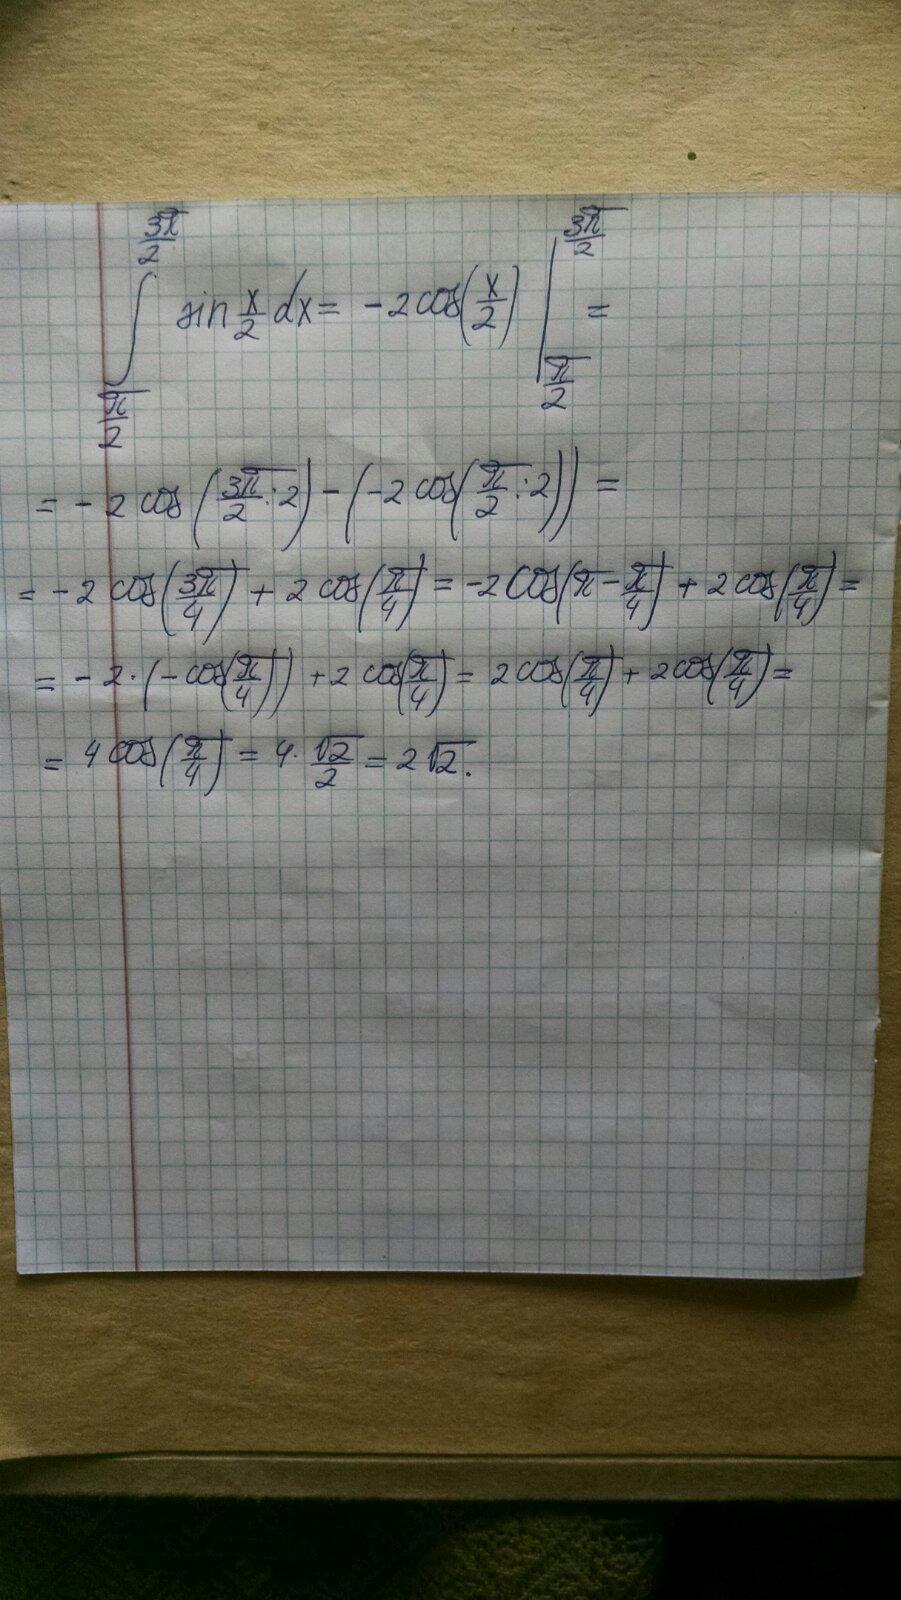 ∫_{π/2}^{3π/2} sin x/2 dx = -2cos(x/2) |_{π/2}^{3π/2} =
= -2 cos(3π/2 : 2) - (-2 cos(π/2 : 2)) =
= -2 cos(3π/4) + 2 cos(π/4) = -2 cos(π - π/4) + 2 cos(π/4) =
= -2 · (-cos(π/4)) + 2 cos(π/4) = 2 cos(π/4) + 2cos(π/4) =
= 4 cos(π/4) = 4 · √2/2 = 2√2.